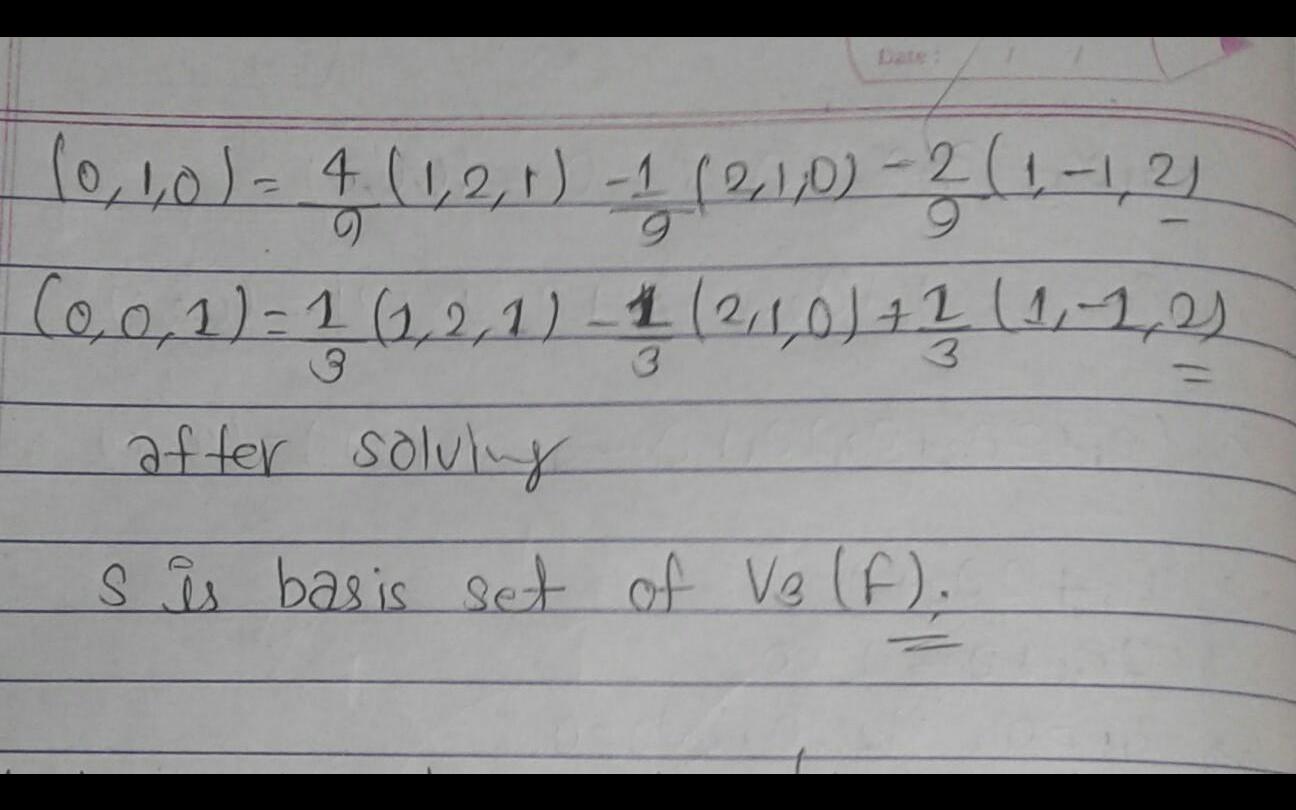 Date: / /
(0,1,0) = 4/9 (1,2,1) -1/9 (2,1,0) -2/9 (1,-1,2)
(0,0,1) = 1/3 (1,2,1) - 1/3 (2,1,0) + 1/3 (1,-1,2)
after solving
S is basis set of V3 (F).